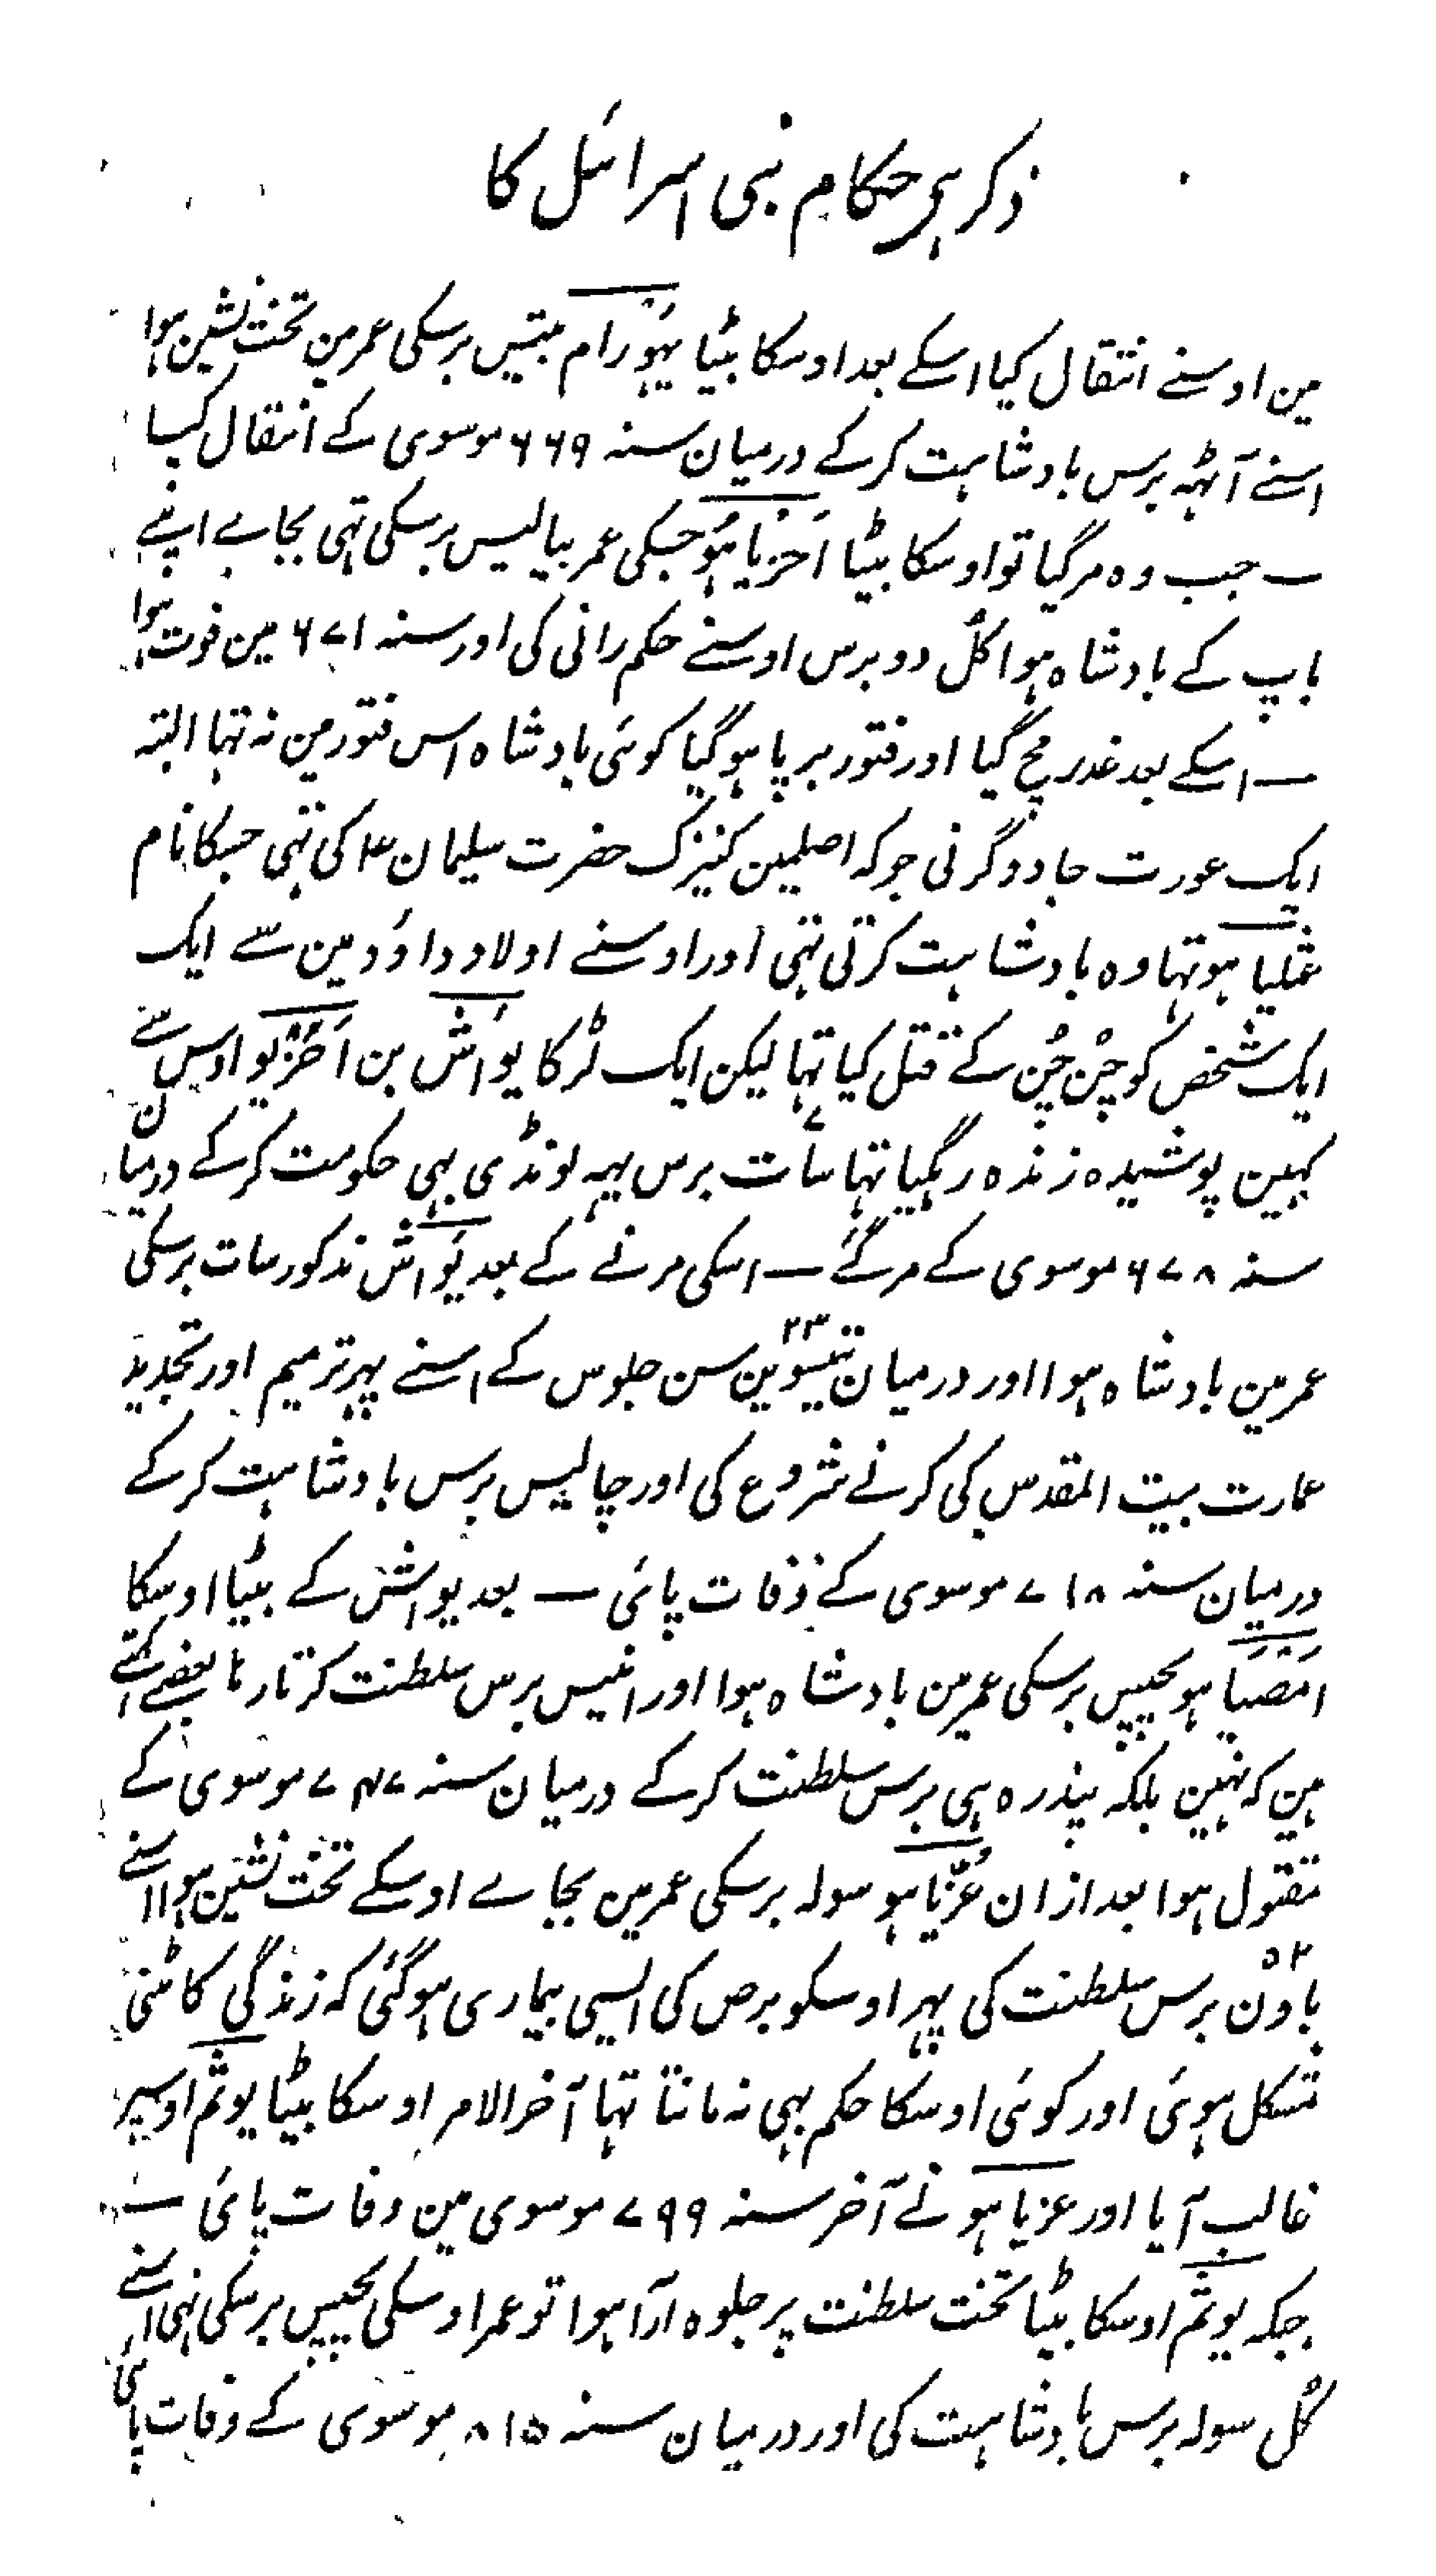 ذکر ہی حکام بنی اسرائیل کا
مین اوسنے انتقال کیا اسکے بعد اوسکا بیٹا یہُورام بتیس برسکی عمر مین تخت نشین ہوا
اسنے آٹھہ برس بادشاہت کرکے درمیان سنہ ۶۶۹ موسوی کے انتقال کیا
— جب وہ مرگیا تو اوسکا بیٹا اَخزیاہُو جسکی عمر بیالیس برسکی تہی بجاے اپنے
باپ کے بادشاہ ہوا کل دو برس اوسنے حکم رانی کی اور سنہ ۶۷۱ مین فوت ہوا
— اسکے بعد غدر مچ گیا اور فتور برپا ہوگیا کوئی بادشاہ اس فتور مین نہ تہا البتہ
ایک عورت جادوگرنی جو کہ اصلمین کنیزک حضرت سلیمان ۴ کی تہی جسکا نام
عثلیا ہو تہا وہ بادشاہت کرتی تہی اور اوسنے اولاد داؤد مین سے ایک
ایک شخص کو چُن چُن کے قتل کیا تہا لیکن ایک لڑکا یواَش بن اَخَزْیو اوس سے
کہین پوشیدہ زندہ رہگیا تہا سات ۷ برس یہہ لونڈی بہی حکومت کرکے درمیان
سنہ ۶۷۸ موسوی کے مرگئے — اسکی مرنے کے بعد یَواش مذکور سات برسکی
عمر مین بادشاہ ہوا اور درمیان تیئسوین ۲۳ سن جلوس کے اسنے پہر ترمیم اور تجدید
عمارت بیت المقدس کی کرنے شروع کی اور چالیس برس بادشاہت کرکے
درمیان سنہ ۷۱۸ موسوی کے وفات پائی — بعد یواش کے بیٹا اوسکا
اَمَصَیا ہو پچیس برسکی عمر مین بادشاہ ہوا اور انیس برس سلطنت کرتا رہا بعضے کہتے
ہین کہ نہین بلکہ پندرہ ہی برس سلطنت کرکے درمیان سنہ ۷۴۷ موسوی کے
مقتول ہوا بعد ازان عُزّیاہو سولہ برسکی عمر مین بجاے اوسکے تخت نشین ہوا اسنے
باون ۵۲ برس سلطنت کی پہر اوسکو برص کی ایسی بیماری ہوگئی کہ زندگی کاٹنی
مشکل ہوئی اور کوئی اوسکا حکم بہی نہ مانتا تہا آخر الامر اوسکا بیٹا یوثم اوسپر
غالب آیا اور عزیاہو نے آخر سنہ ۷۹۹ موسوی مین وفات پائی —
جبکہ یوثم اوسکا بیٹا تخت سلطنت پر جلوہ آرا ہوا تو عمر اوسکی پچیس برسکی تہی اسنے
کُل سولہ برس بادشاہت کی اور درمیان سنہ ۸۱۵ موسوی کے وفات پائی